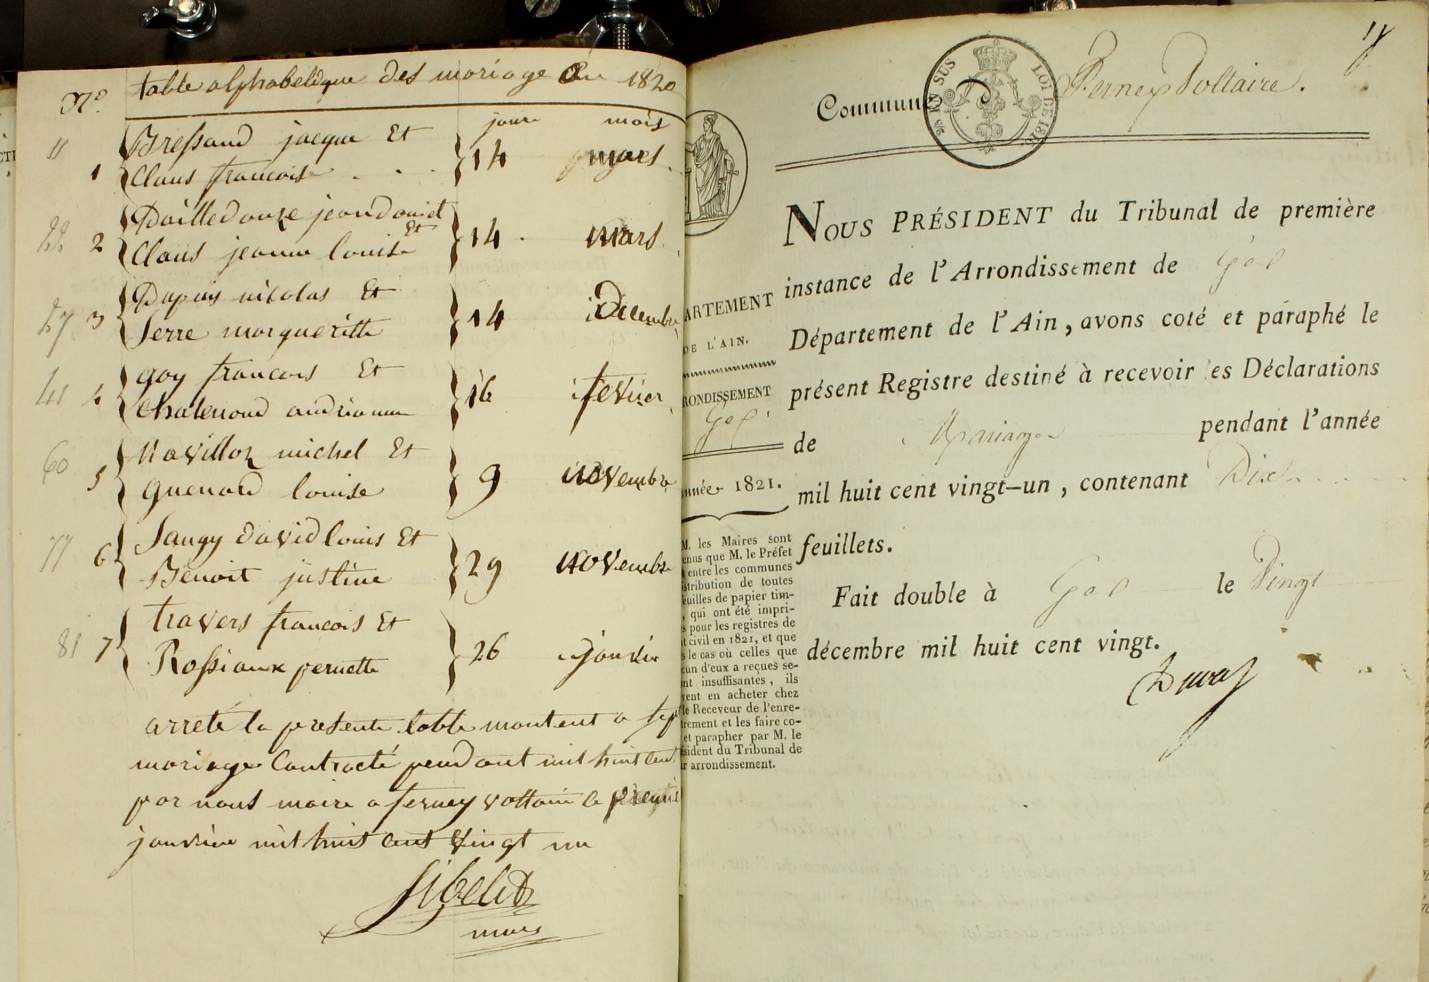 table alphabetique des mariage de 1820
N° jours mois
11 1 Bressand jacque Et
Claus francoise 14 mars
22 2 Dailledouze jean daniel Et
Claus jeanne louise 14 mars
27 3 Dupuis nicolas Et
Serre margueritte 14 Decembre
41 4 goy francois Et
Chatenoud andrianne 16 fevrier
60 5 Navilloz michel Et
guenard louise 9 novembre
77 6 Saugy david louis Et
Benoit justine 29 novembre
81 7 travers francois Et
Rossiaux pernette 26 janvier
arreté la presente table montent a sept
mariage Contracté pendant mil huit cent
par nous maire a ferney voltaire le premier
janvier mil huit cent vingt un
maire
Commune D Ferney Voltaire.
25 EN SUS LOI DE 1816
NOUS PRÉSIDENT du Tribunal de première
instance de l'Arrondissement de Gex
Département de l'Ain, avons coté et paraphé le
présent Registre destiné à recevoir les Déclarations
de Mariage pendant l'année
mil huit cent vingt-un, contenant Dix
feuillets.
Fait double à Gex le Vingt
décembre mil huit cent vingt.
ARTEMENT
DE L'AIN.
RONDISSEMENT
Gex
nnée 1821.
M. les Maires sont
enus que M. le Préfet
entre les communes
stribution de toutes
euilles de papier tim-
, qui ont été impri-
s pour les registres de
t civil en 1821, et que
s le cas où celles que
cun d'eux a reçues se-
nt insuffisantes, ils
vent en acheter chez
le Receveur de l'enre-
rement et les faire co-
et parapher par M. le
sident du Tribunal de
r arrondissement.